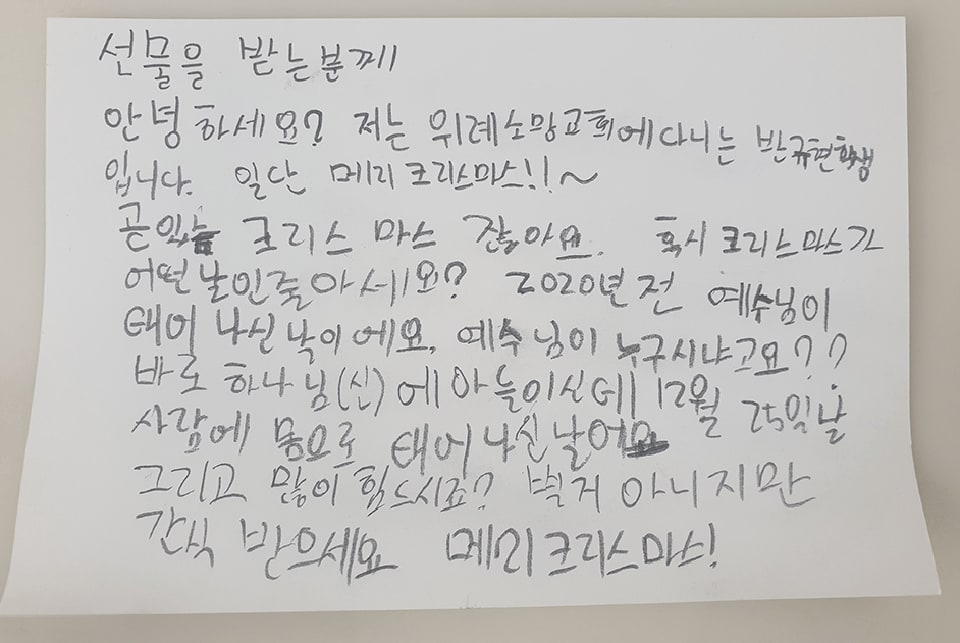 선물을 받는분께
안녕하세요? 저는 위례소망교회에다니는 반규현학생
입니다. 일단 메리크리스마스!!~
곧있늠 크리스 마스 잖아요. 혹시 크리스마스가
어떤날인줄아세요? 2020년전 예수님이
태어나신 날이에요, 예수님이 누구시냐고요??
바로 하나님(신)에아들이신데 12월 25일날
사람에 몸으로 태어나신날어요
그리고 많이힘드시죠? 별거 아니지만
간식 받으세요 메리크리스마스!